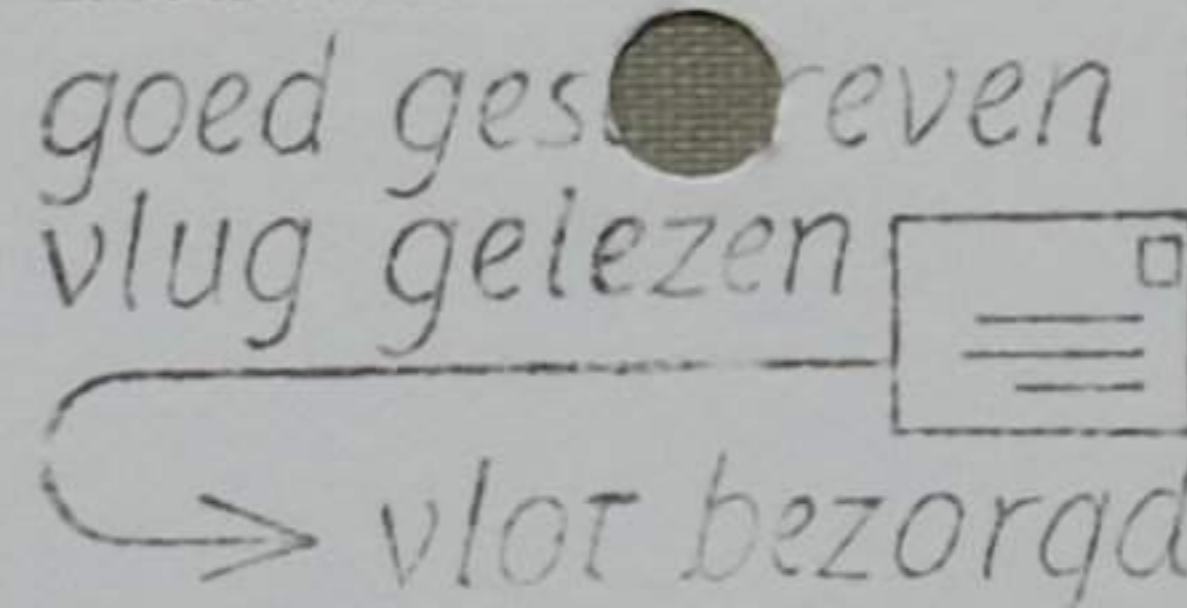 goed geschreven
vlug gelezen
vlot bezorgd